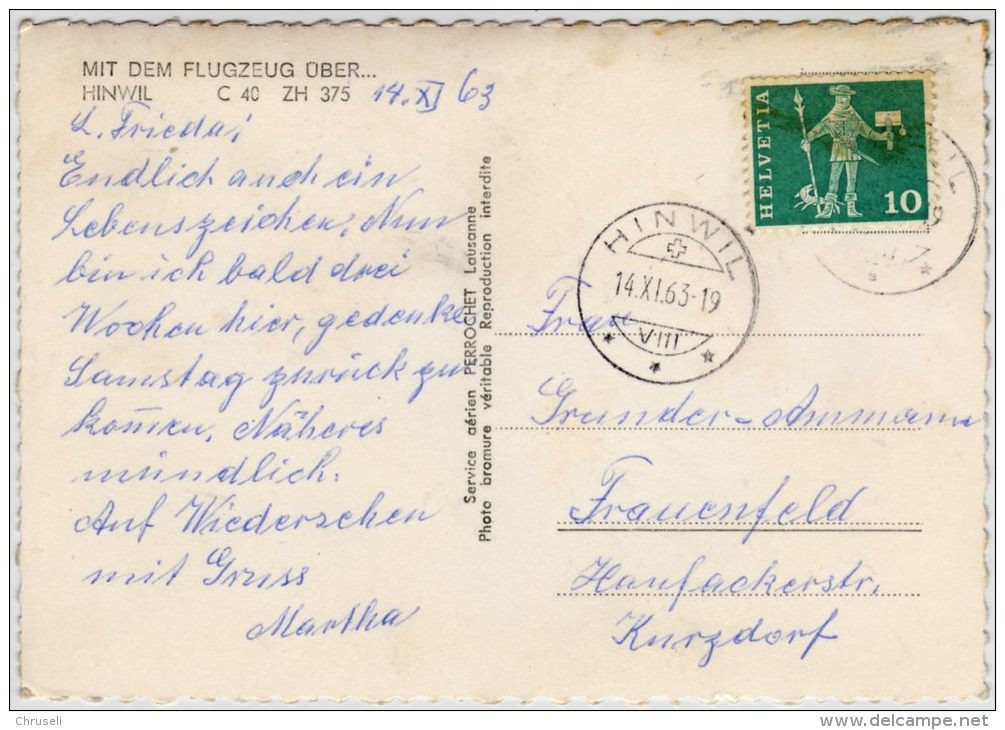 MIT DEM FLUGZEUG ÜBER...
HINWIL C 40 ZH 375 14. XI 63
L. Frieda!
Endlich auch ein
Lebenszeichen, Nun
bin ich bald drei
Wochen hier, gedenke
Samstag zurück zu
kom̄en, Näheres
mündlich.
Auf Wiedersehen
mit Gruss
Martha
Service aérien PERROCHET Lausanne
Photo bromure véritable Reproduction interdite
HELVETIA
10
HINWIL
14.XI.63-19
VIII
Frau
Grunder-Ammann
Frauenfeld
Hanfackerstr.
Kurzdorf
Chruseli